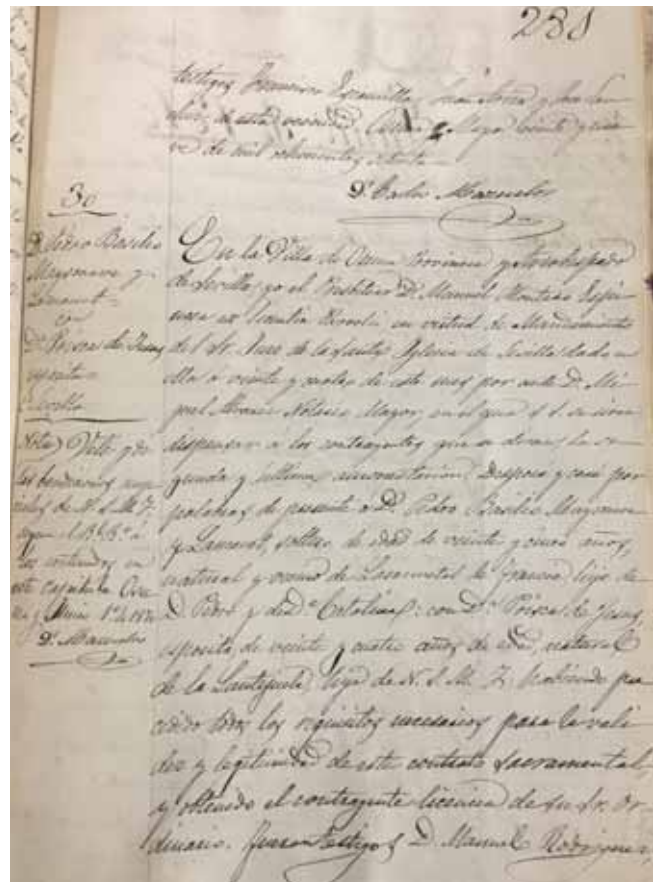 281
testigos Francisco
de esta vecindad Osuna y Mayo veinte y nue
ve de mil ochocientos setenta
Dr. Carlos Mazuelos
30
D. Pedro Basilio
y
con
Dª Prisca de Jesus
esposita
Sevilla
Nota) Velé y di
las bendiciones nup
ciales de N. S. M. Y.
segun el
los contenidos en
este capitulo Osu
na y Junio 1º de 1870
Dr. Mazuelos
En la Villa de Osuna Provincia y Arzobispado
de Sevilla, yo el Presbitero D. Manuel Montero Espi
nosa ex licentia Parrochi en virtud de Mandamiento
del Sr. Juez de la Santa Iglesia de Sevilla dado en
ella á veinte y cuatro de este mes por ante D. Mi
guel Alvarez Notario Mayor, en el que S. S. se sirve
dispensar á los contrayentes que se diran, la se
gunda y ultima amonestacion: Desposé y casé por
palabras de presente á D. Pedro Basilio
y soltero de edad de veinte y cinco años,
natural y vecino de de Francia hijo de
D. Pedro y de Dª Catalina: con Dª Prisca de Jesus,
esposita, de veinte y cuatro años de edad, natural
de la Lantejuela hija de N. S. M. Y. habiendo pre
cedido todos los requisitos necesarios para la vali
dez y legitimidad de este contrato Sacramental,
y obtenido el contrayente licencia de su Sr. Or
dinario. fueron testigos D. Manuel Rodriguez,